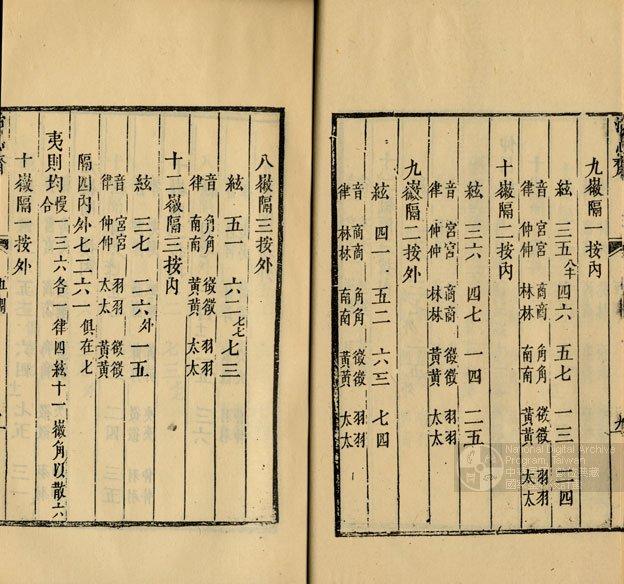 九徽隔一按內
絃 三五 八十 四六 五七 一三 二四
音 宮宮 商商 角角 徵徵 羽羽
律 仲仲 林林 南南 黃黃 太太
十徽隔二按內
絃 三六 四七 一四 二五
音 宮宮 商商 徵徵 羽羽
律 仲仲 林林 黃黃 太太
九徽隔二按外
絃 四一 五二 六三 七四
音 商商 角角 徵徵 羽羽
律 林林 南南 黃黃 太太
八徽隔三按外
絃 五一 六二 七七 七三
音 角角 徵徵 羽羽
律 南南 黃黃 太太
十二徽隔三按內
絃 三七 二六外 一五
音 宮宮 羽羽 徵徵
律 仲仲 太太 黃黃
隔四內外七二六一 俱在七
夷則均合 慢一三六各一律四絃十一徽角以散六
十徽隔一按外
National Digital Archive
Program, Taiwan